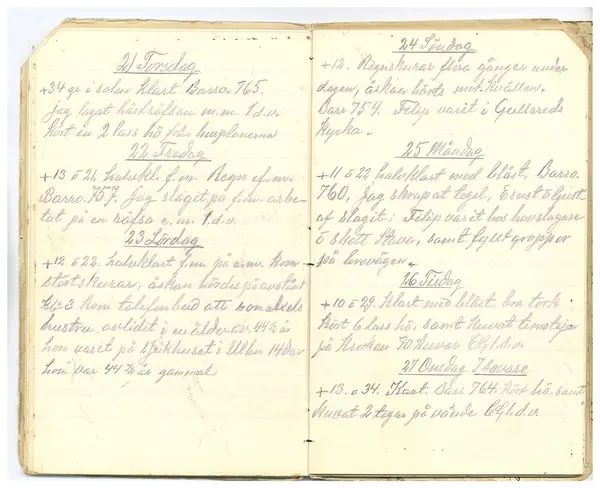 21 Torsdag
+34 gr i solen Klart Barro. 765.
jag lagat hästräfsan m.m 1 d.v.
kört in 2 lass hö från husplanerna
22 Fredag
+13 o 21, halvkl. f.m Regn e.m.
Barro. 757. Jag slagit på f.m. arbe-
tat på en räfsa e.m. 1 d.v.
23 Lördag
+12 o 22. halvklart f.m. på e.m. kom
störtskurar, åskan hördes på avstånd
Kl=3 kom telefonbud att son Axels
hustru avlidit i en ålder av 44½ år
hon varit på sjukhuset i Ulhn 14 dar
hon var 44½ år gammal
24 Söndag
+12. Regnskurar flera gånger under
dagen, åskan hörts mot kvällen.
Barr 754. Filip varit i Gullereds
kyrka.
25 Måndag
+11 o 22 halvklart med blåst. Barro.
760. Jag skrapat tegel, Ernst o
af slagit. Filip varit hos hovslagare
o skott Stava, samt fyllt groppar
på brovägen.
26 Tisdag
+10 o 29. Klart med blåst. bra tork
Kört 6 lass hö, samt kuvat timotejen
på 70 kuvar CG 1.d.v.
27 Onsdag 7 sovare
+13. o 34. Klart. Barr 764. Kört hö, samt
kuvat 2 tegar på CG 1.d.v.